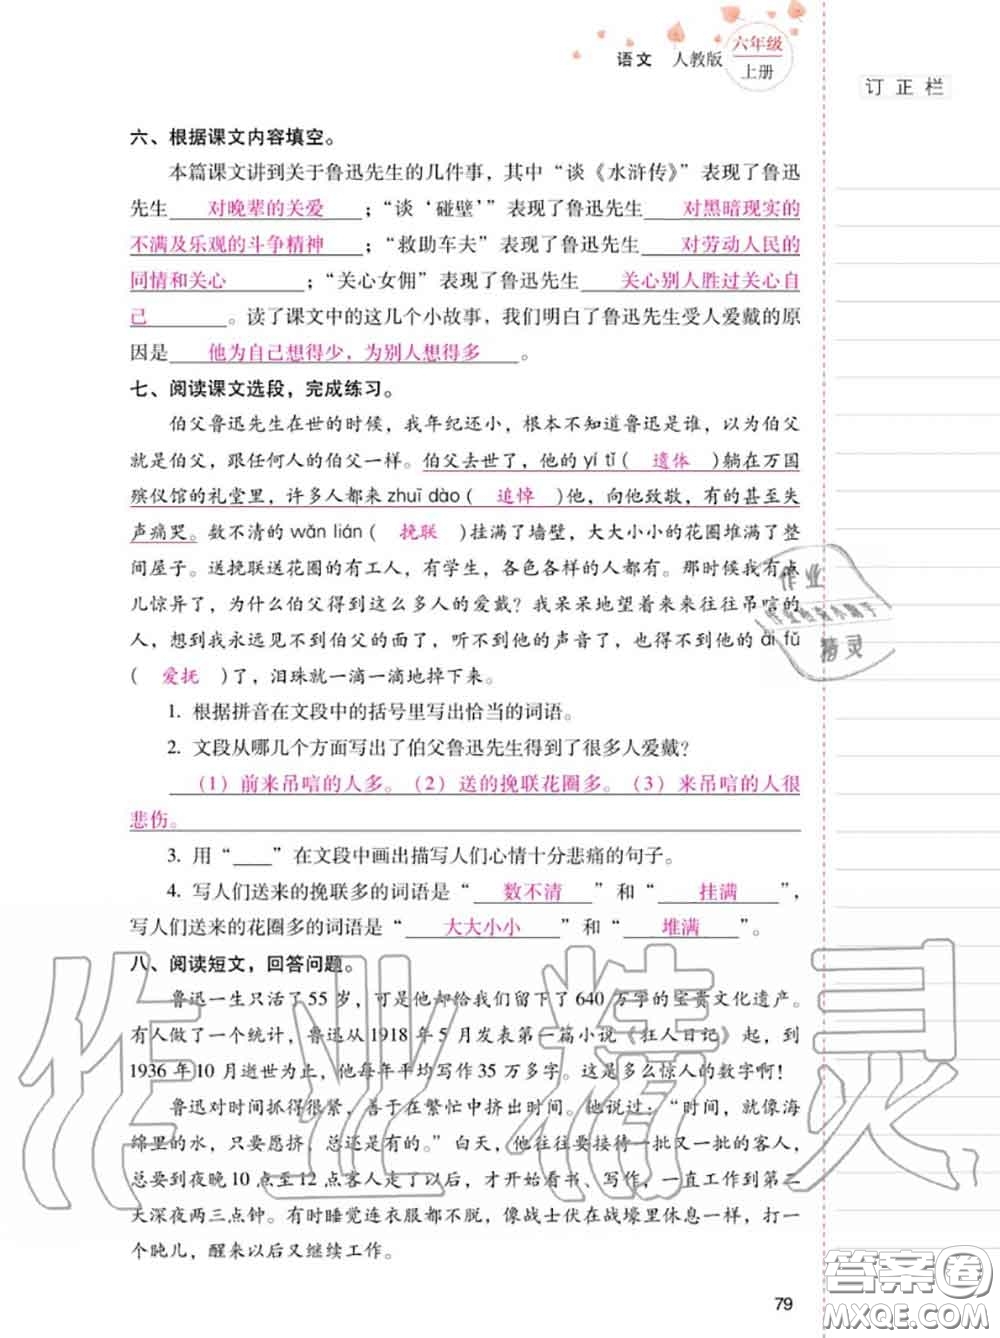 语文 人教版 六年级
上册
订 正 栏
六、根据课文内容填空。
本篇课文讲到关于鲁迅先生的几件事，其中“谈《水浒传》”表现了鲁迅
先生 对晚辈的关爱 ；“谈‘碰壁’”表现了鲁迅先生 对黑暗现实的
不满及乐观的斗争精神 ；“救助车夫”表现了鲁迅先生 对劳动人民的
同情和关心 ；“关心女佣”表现了鲁迅先生 关心别人胜过关心自
己 。读了课文中的这几个小故事，我们明白了鲁迅先生受人爱戴的原
因是 他为自己想得少，为别人想得多 。
七、阅读课文选段，完成练习。
伯父鲁迅先生在世的时候，我年纪还小，根本不知道鲁迅是谁，以为伯父
就是伯父，跟任何人的伯父一样。伯父去世了，他的yí tǐ（ 遗体 ）躺在万国
殡仪馆的礼堂里，许多人都来zhuī dào（ 追悼 ）他，向他致敬，有的甚至失
声痛哭。数不清的wǎn lián（ 挽联 ）挂满了墙壁，大大小小的花圈堆满了整
间屋子。送挽联送花圈的有工人，有学生，各色各样的人都有。那时候我有点
儿惊异了，为什么伯父得到这么多人的爱戴？我呆呆地望着来来往往吊唁的
人，想到我永远见不到伯父的面了，听不到他的声音了，也得不到他的ài fǔ
（ 爱抚 ）了，泪珠就一滴一滴地掉下来。
1. 根据拼音在文段中的括号里写出恰当的词语。
2. 文段从哪几个方面写出了伯父鲁迅先生得到了很多人爱戴？
（1）前来吊唁的人多。（2）送的挽联花圈多。（3）来吊唁的人很
悲伤。
3. 用“____”在文段中画出描写人们心情十分悲痛的句子。
4. 写人们送来的挽联多的词语是“ 数不清 ”和“ 挂满 ”，
写人们送来的花圈多的词语是“ 大大小小 ”和“ 堆满 ”。
八、阅读短文，回答问题。
鲁迅一生只活了55岁，可是他却给我们留下了640万字的宝贵文化遗产。
有人做了一个统计，鲁迅从1918年5月发表第一篇小说《狂人日记》起，到
1936年10月逝世为止，他每年平均写作35万多字。这是多么惊人的数字啊！
鲁迅对时间抓得很紧，善于在繁忙中挤出时间。他说过：“时间，就像海
绵里的水，只要愿挤，总还是有的。”白天，他往往要接待一批又一批的客人，
总要到夜晚10点至12点客人走了以后，才开始看书、写作，一直工作到第二
天深夜两三点钟。有时睡觉连衣服都不脱，像战士伏在战壕里休息一样，打一
个盹儿，醒来以后又继续工作。
79
作业精灵
作业
精灵
答案圈
MXQE.COM